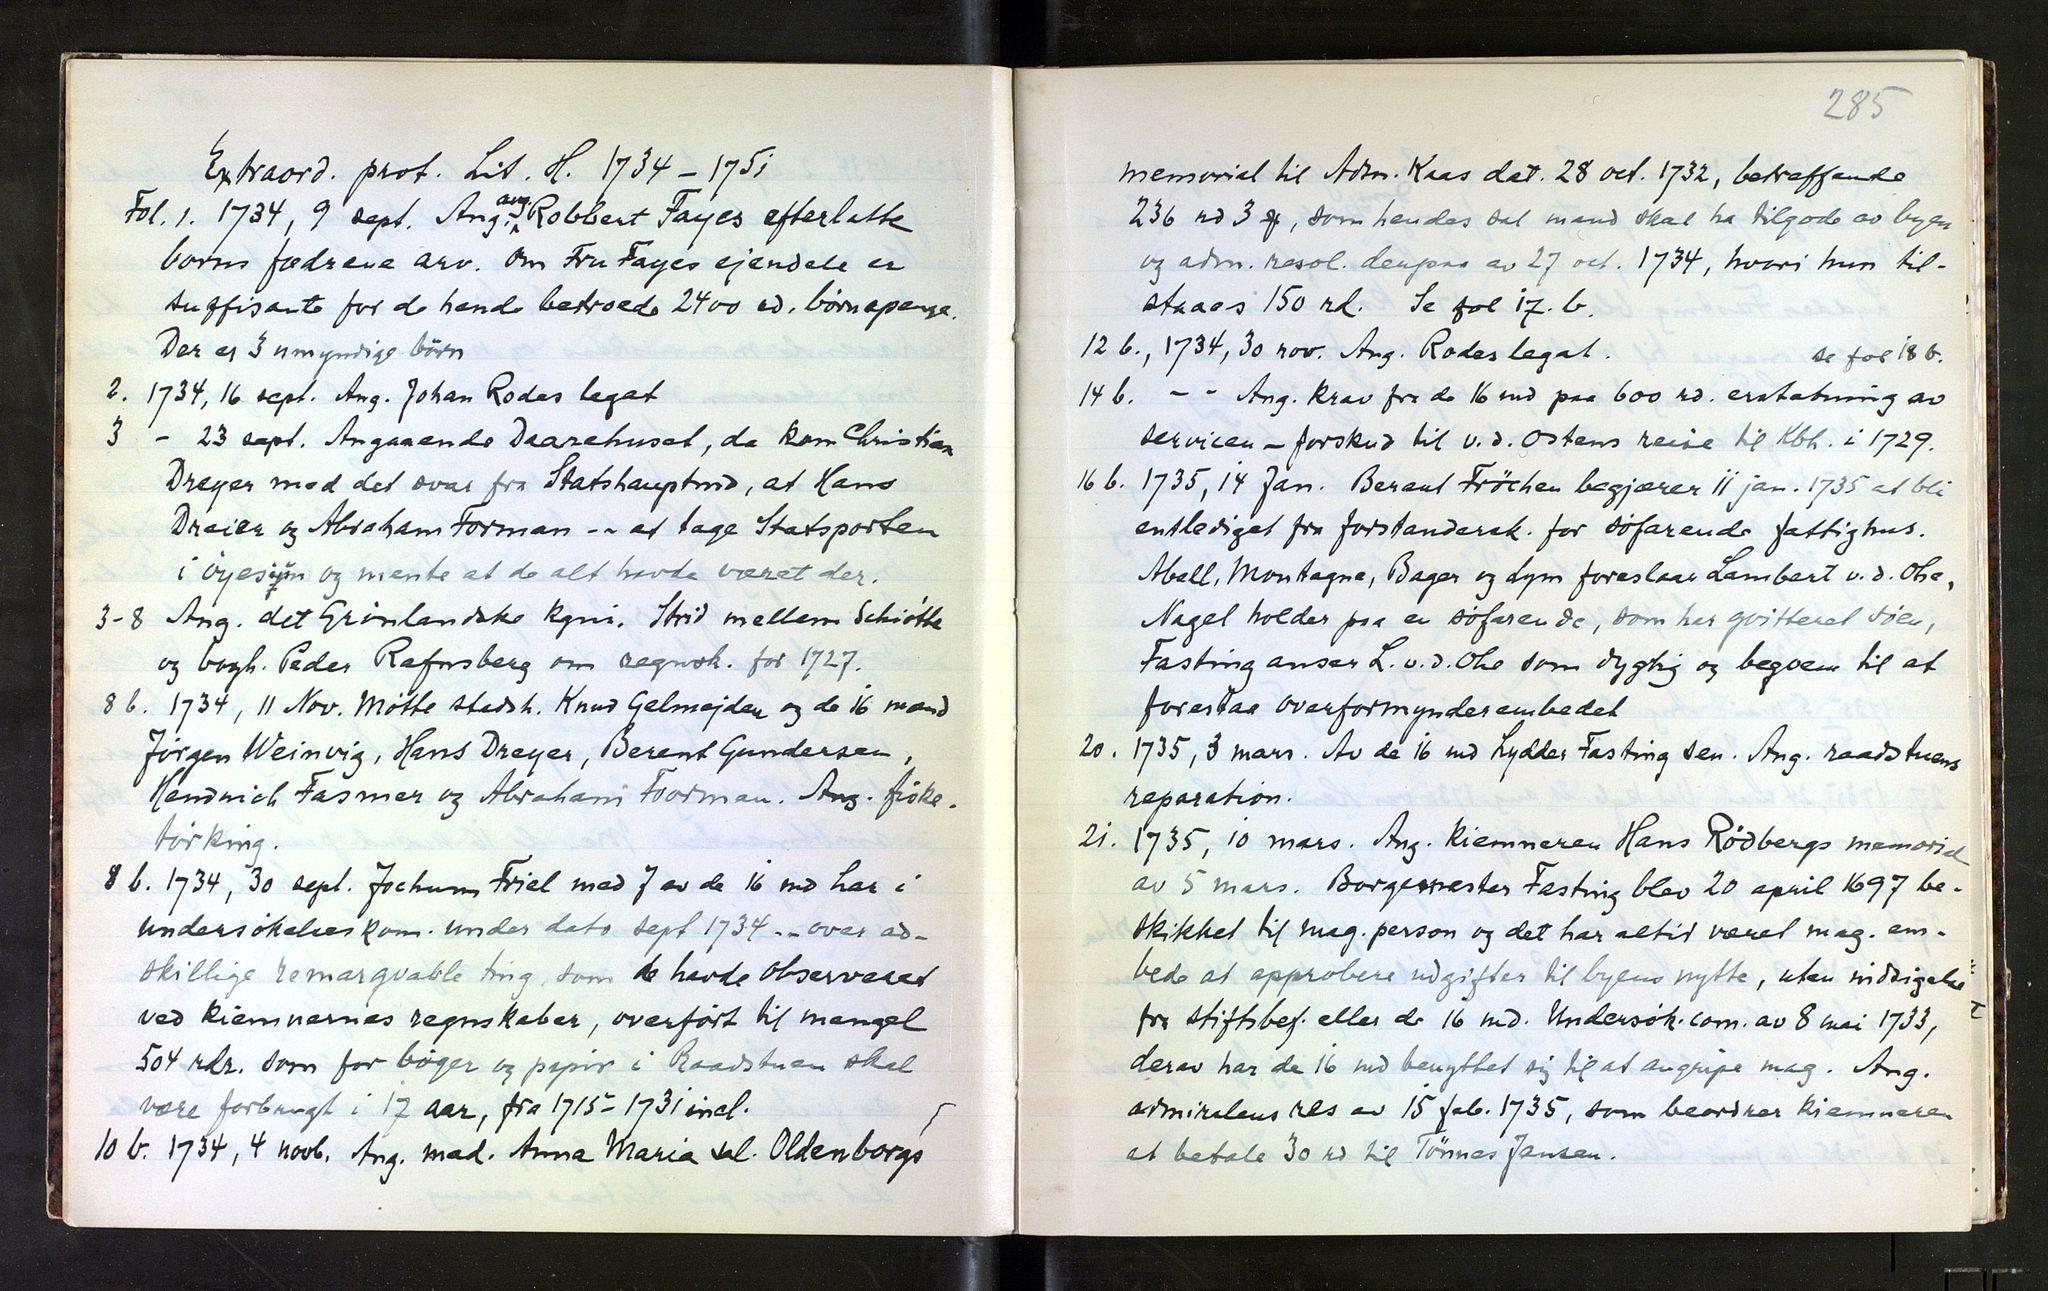 Extraord. prot. Lit. H. 1734 – 1751
Fol. 1. 1734, 9 sept. Ang. avg. Robbert Fayes efterlatte
borns fædrene arv. Om Fru Fayes ejendele er
suffisante for de hende betroede 2400 rd. børnepenge.
Der er 3 umyndige børn
2. 1734, 16 sept. Ang. Johan Rodes legat
3 – 23 sept. Angaaende Daarehuset, da kom Christian
Dreyer med det svar fra Statshauptmd, at Hans
Dreier og Abraham Forman -- at tage Statsporten
i öyesijn og mente at de alt havde været der.
3-8 Ang. det Grönlandske kpni. Strid mellem Schiötte
og bogh. Peder Rafnsberg om regnsk. for 1727.
8 b. 1734, 11 Nov. Mötte stadsh. Knud Gelmejden og de 16 mænd
Jörgen Weinwig, Hans Dreyer, Berent Gundersen,
Hendrich Fasmer og Abraham Foorman. Ang. fiske-
törking.
8 b. 1734, 30 sept. Jochum Friel med 7 av de 16 md har i
undersökelseskom. under dato sept 1734 -- over ad-
skillige remarqvable ting, som de havde observeret
ved kiemnernes regnskaber, overfört til mangel
504 rdr. som for böger og papir i Raadstuen skal
være forbrugt i 17 aar, fra 1715 – 1731 incl.
10 b. 1734, 4 novb. Ang. mad. Anna Maria sal. Oldenborgs
285
memorial til Adm. Kaas dat. 28 oct. 1732, betreffende
236 rd 3 , som hendes sal mand skal ha tilgode av byen
og adm. resol. derpaa av 27 oct. 1734, hvori hun til-
staaes 150 rd. Se fol 17. b.
12 b., 1734, 30 nov. Ang. Rodes legat. se fol 18 b.
14 b. – – Ang. krav fra de 16 md paa 600 rd. erstatning av
servicen – forskud til v. d. Ostens reise til Kbh. i 1729.
16 b. 1735, 14 Jan. Berent Fröchen begjærer 11 jan. 1735 at bli
entlediget fra forstandersk. for söfarende fattighus.
Abell, Montagne, Bager og dym foreslaar Lambert v. d. Ohe,
Nagel holder paa en söfarende, som har qvitteret söen,
Fasting anser L. v. d. Ohe som dygtig og beqvem til at
forestaa overformynderembedet
20. 1735, 3 mars. Av de 16 md Lydder Fasting sen. Ang. raadstuens
reparation.
21. 1735, 10 mars. Ang. kiemneren Hans Rödbergs memorial
av 5 mars. Borgemester Fasting blev 20 april 1697 be-
skikket til mag. person og det har altid været mag. em-
bede at approbere udgifter til byens nytte, uten indsigelse
fra stiftsbef. eller de 16 md. Undersök. com. av 8 mai 1733,
derav har de 16 md benyttet sig til at angripe mag. Ang.
admiralens res av 15 feb. 1735, som beordrer kiemneren
at betale 30 rd til Tönnes Jansen.